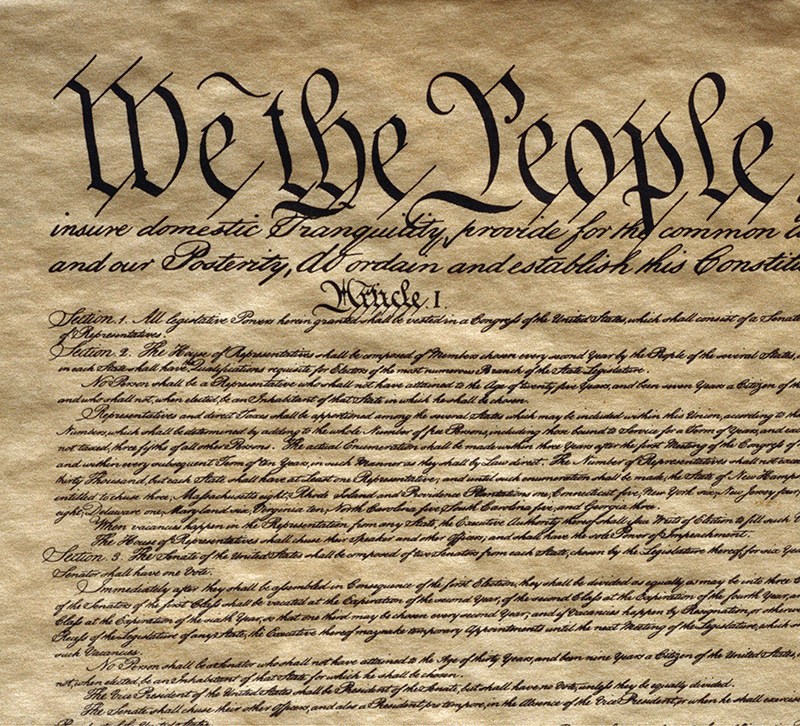 We the People
insure domestic Tranquility, provide for the common
and our Posterity, do ordain and establish this Constitu
Article I.
Section. 1. All legislative Powers herein granted shall be vested in a Congress of the United States, which shall consist of a Senate
of Representatives.
Section. 2. The House of Representatives shall be composed of Members chosen every second Year by the People of the several States,
in each State shall have the Qualifications requisite for Electors of the most numerous Branch of the State Legislature.
No Person shall be a Representative who shall not have attained to the Age of twenty five Years, and been seven Years a Citizen of th
and who shall not, when elected, be an Inhabitant of that State in which he shall be chosen.
Representatives and direct Taxes shall be apportioned among the several States which may be included within this Union, according to th
Numbers, which shall be determined by adding to the whole Number of free Persons, including those bound to Service for a Term of Years, and ex
not taxed, three fifths of all other Persons. The actual Enumeration shall be made within three Years after the first Meeting of the Congress of
and within every subsequent Term of ten Years, in such Manner as they shall by Law direct. The Number of Representatives shall not exce
thirty Thousand, but each State shall have at Least one Representative; and until such enumeration shall be made, the State of New Hamps
entitled to chuse three, Massachusetts eight, Rhode Island and Providence Plantations one, Connecticut five, New York six, New Jersey four,
eight, Delaware one, Maryland six, Virginia ten, North Carolina five, South Carolina five, and Georgia three.
When vacancies happen in the Representation from any State, the Executive Authority thereof shall issue Writs of Election to fill such
The House of Representatives shall chuse their Speaker and other Officers; and shall have the sole Power of Impeachment.
Section. 3. The Senate of the United States shall be composed of two Senators from each State, chosen by the Legislature thereof, for six Year
Senator shall have one Vote.
Immediately after they shall be assembled in Consequence of the first Election, they shall be divided as equally as may be into three
of the Senators of the first Class shall be vacated at the Expiration of the second Year, of the second Class at the Expiration of the fourth Year, an
Class at the Expiration of the sixth Year, so that one third may be chosen every second Year; and if Vacancies happen by Resignation, or otherwi
Recess of the Legislature of any State, the Executive thereof may make temporary Appointments until the next Meeting of the Legislature, which
such Vacancies.
No Person shall be a Senator who shall not have attained to the Age of thirty Years, and been nine Years a Citizen of the United States,
not, when elected, be an Inhabitant of that State for which he shall be chosen.
The Vice President of the United States shall be President of the Senate, but shall have no Vote, unless they be equally divided.
The Senate shall chuse their other Officers, and also a President pro tempore, in the Absence of the Vice President, or when he shall exercis